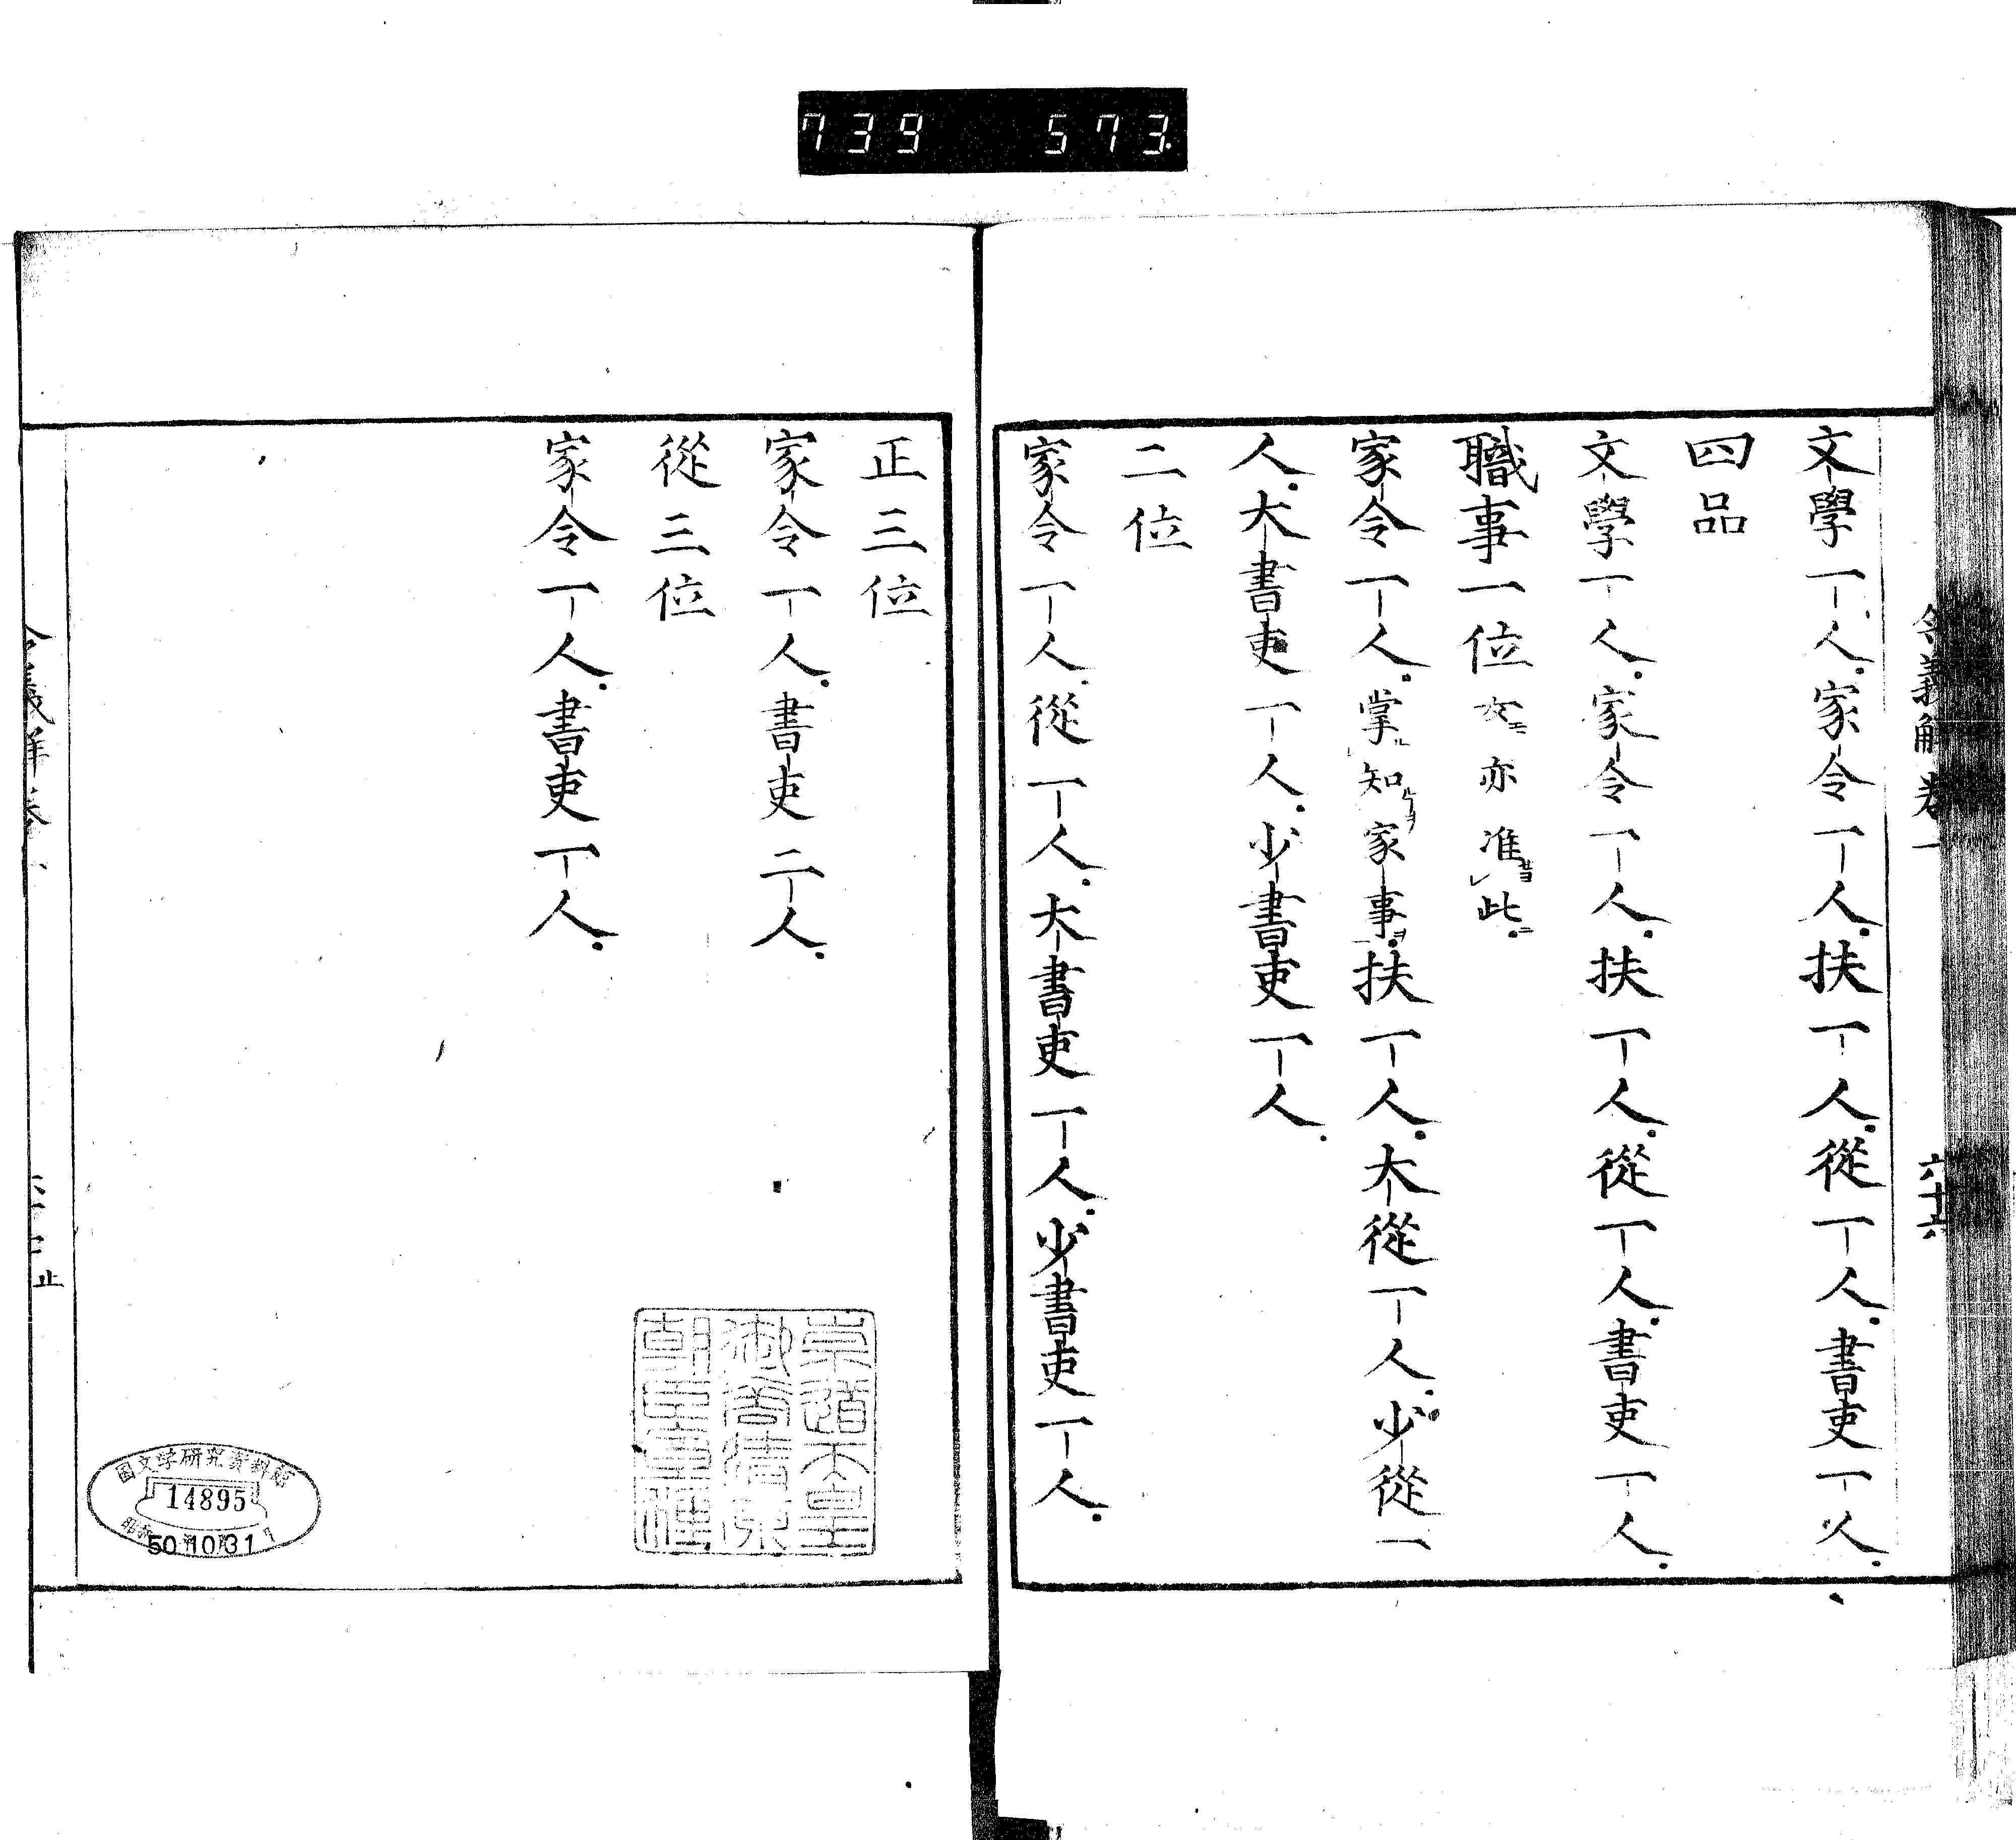 739 573
令義解卷一 六十六
文學一人。家令一人。扶一人。從一人。書吏一人。
四品
文學一人。家令一人。扶一人。從一人。書吏一人。
職事一位 女亦准此。
家令一人。掌知家事。扶一人。大從一人。少從一
人。大書吏一人。少書吏一人。
二位
家令一人。從一人。大書吏一人。少書吏一人。
正三位
家令一人。書吏二人。
從三位
家令一人。書吏一人。
崇道天皇
御裔清
朝臣
国文学研究資料館
14895
昭和
50.10.31